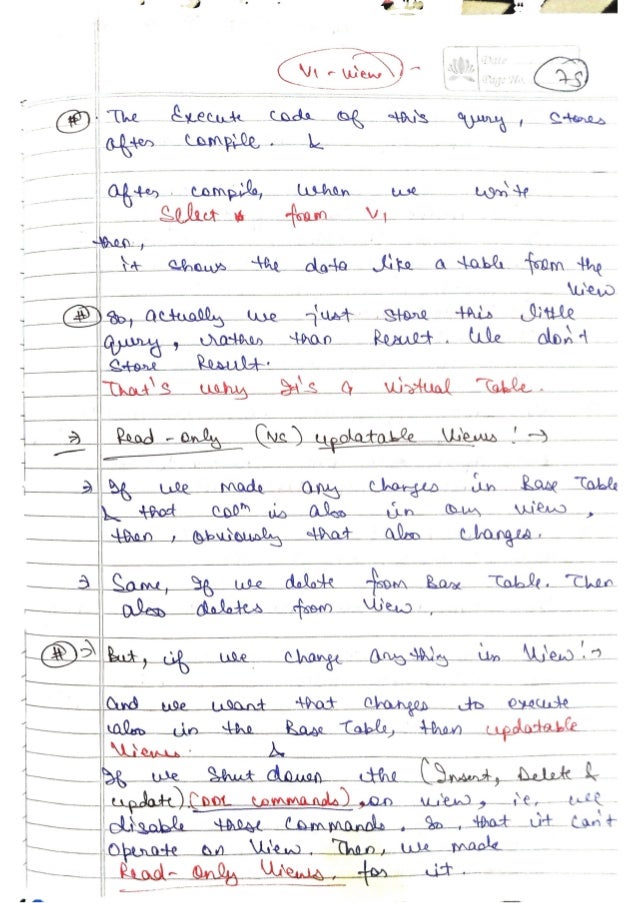 V1 - View
Date
Page No. 75
The Execute code of this query, stores
after compile. &
after compile, when we write
Select * from V1
then,
it shows the data like a table from the
view
So, actually we just store this little
query, rather than Result. We don't
store Result.
That's why It's a Virtual Table.
⇒ Read-only (VS) updatable Views! →
⇒ If we made any changes in Base Table
& that colm is also in our view,
then, obviously that also changes.
⇒ Same, If we delete from Base Table. Then
also deletes from View.
# ⇒ But, if we change anything in View! →
and we want that changes to execute
also in the Base Table, then updatable
Views. &
If we Shut down the (Insert, Delete &
update) (DML commands), on view, i.e, we
disable these commands. So, that it can't
operate on View. Then, we made
Read-Only Views. for it.